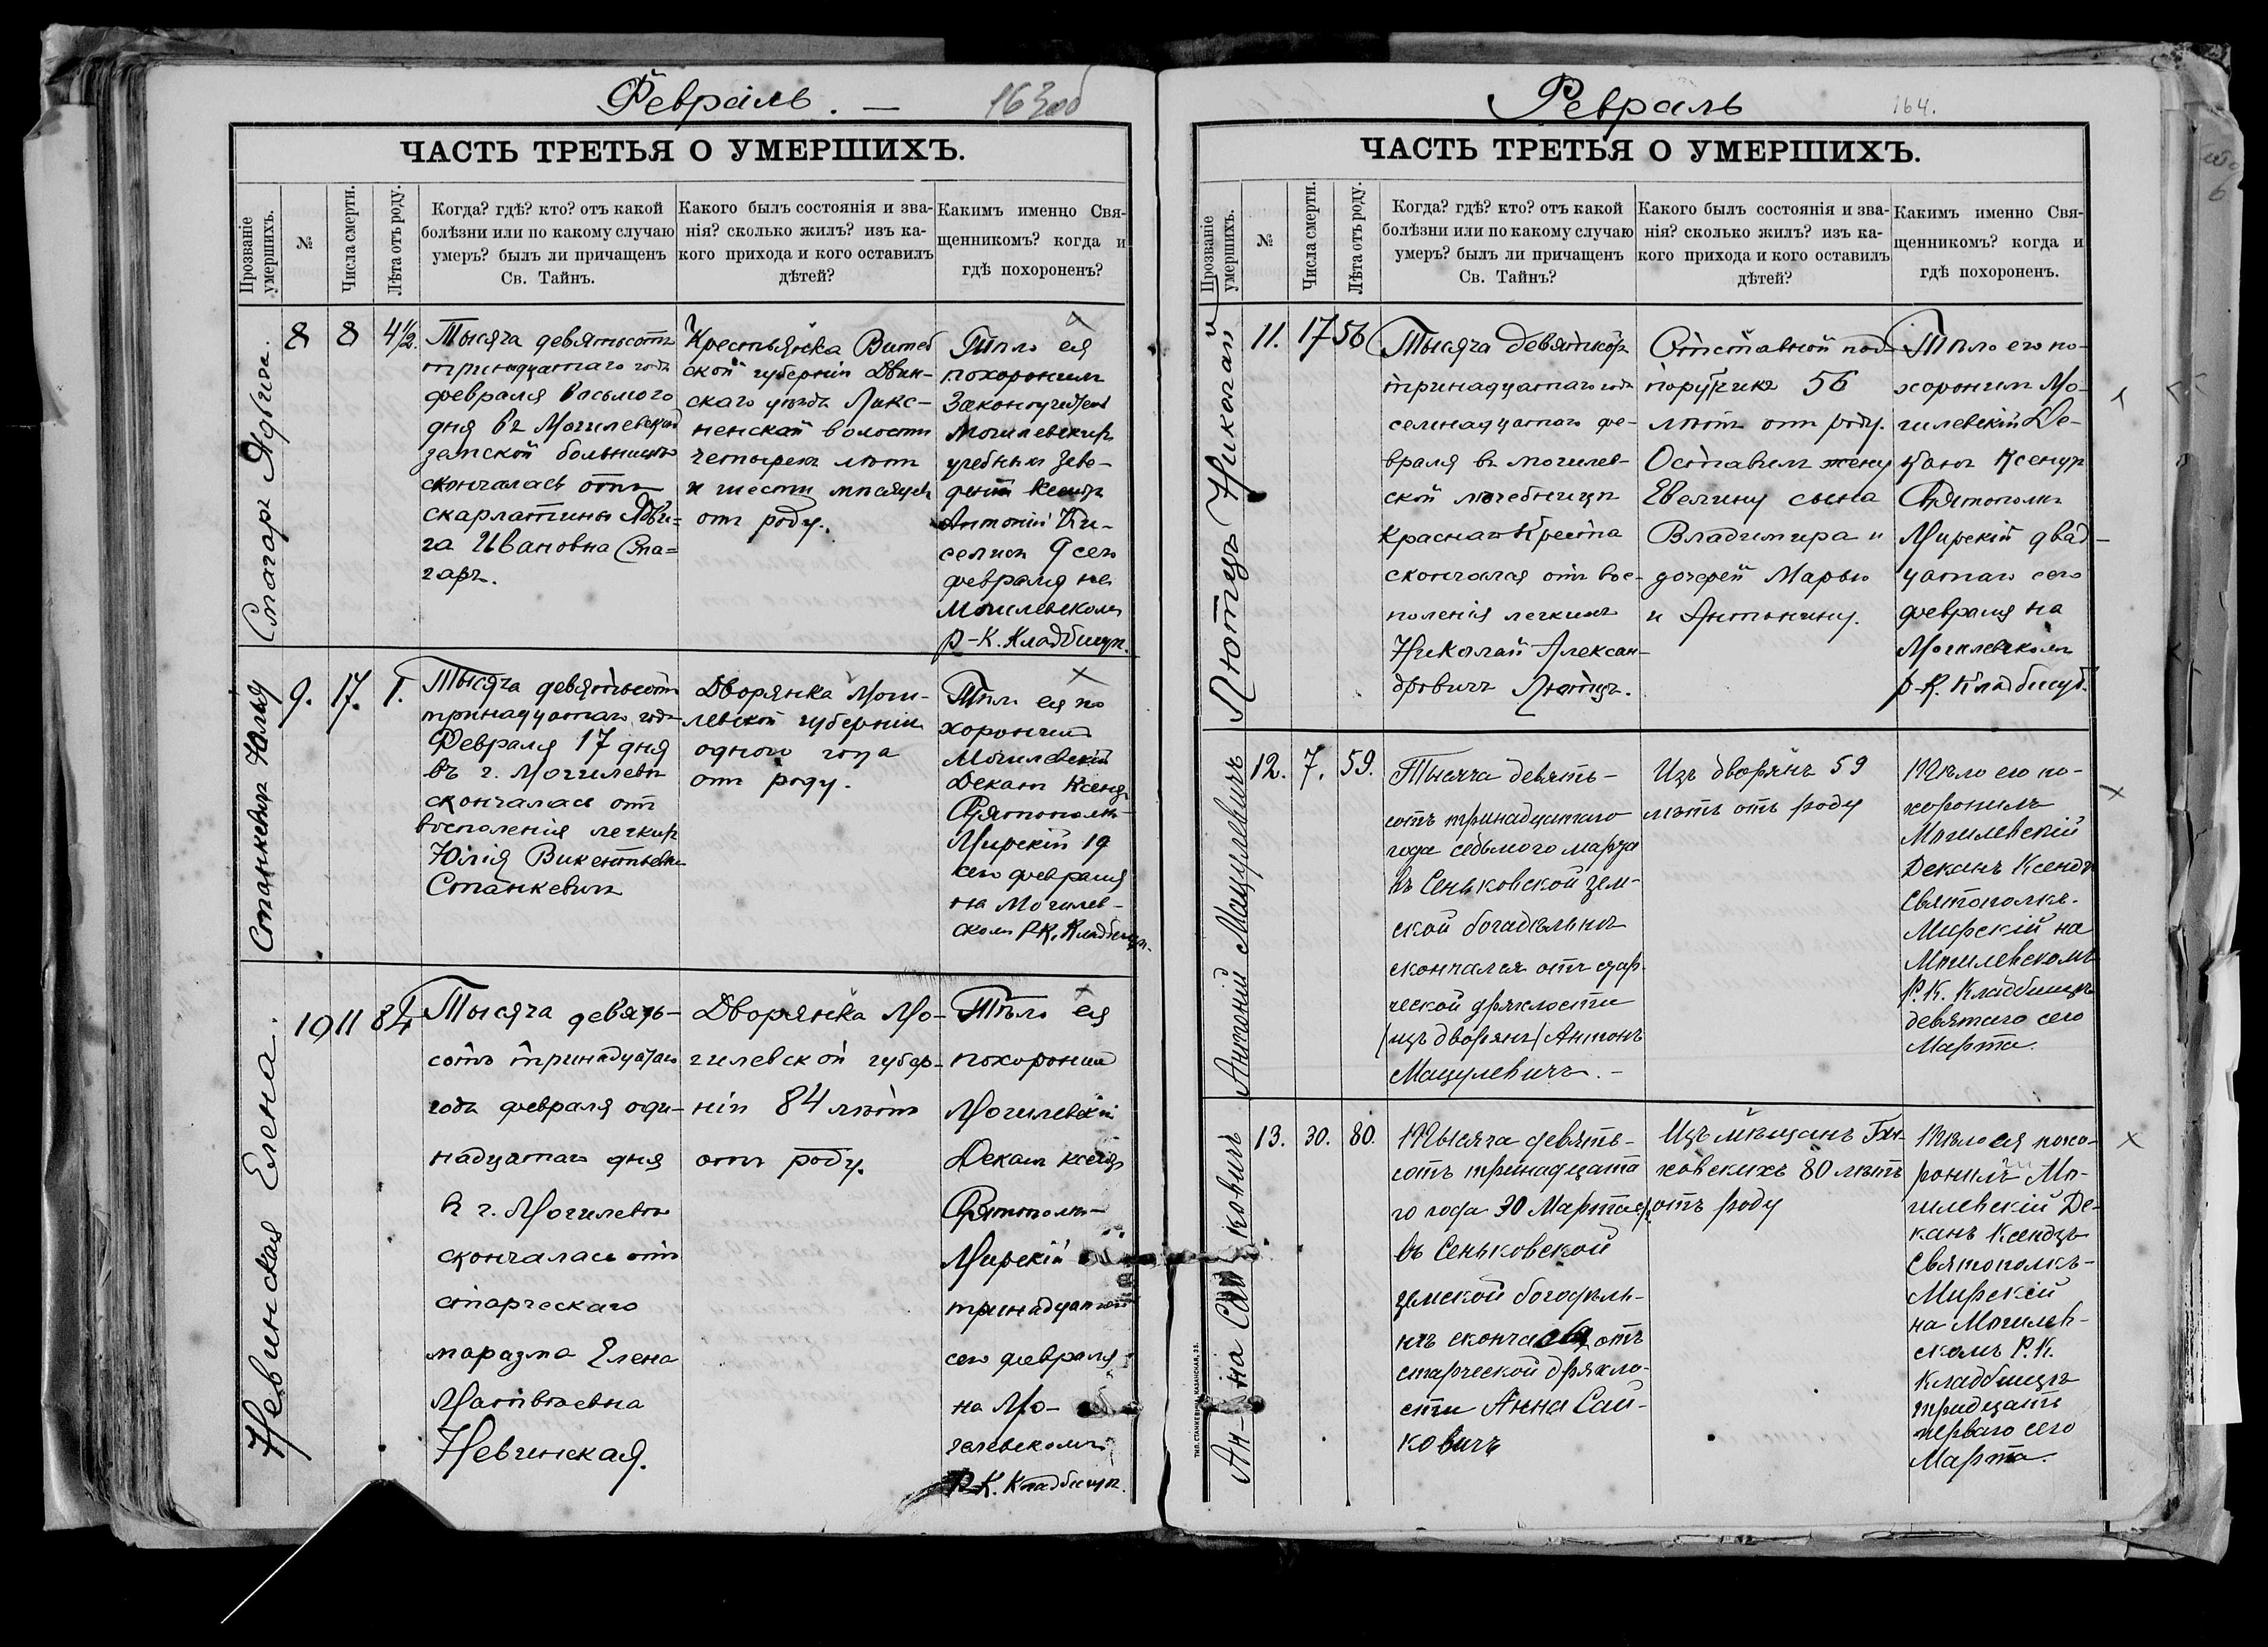 Февраль. —
163об
ЧАСТЬ ТРЕТЬЯ О УМЕРШИХЪ.
Прозваніе умершихъ.
№
Числа смерти.
Лѣта отъ роду.
Когда? гдѣ? кто? отъ какой
болѣзни или по какому случаю
умеръ? былъ ли причащенъ
Св. Тайнъ.
Какого былъ состоянія и зва-
нія? сколько жилъ? изъ ка-
кого прихода и кого оставилъ
дѣтей?
Какимъ именно Свя-
щенникомъ? когда и
гдѣ похороненъ?
Спагаръ Ядвига.
8
8
4½.
Тысяча девятьсотъ
тринадцатаго года
февраля восьмого
дня въ Могилевской
земской больницѣ
скончалась отъ
скарлатины Ядви=
га Ивановна Спа=
гаръ.
Крестьянка Витеб
ской губерніи Двин-
скаго уѣзда Ликс-
ненской волости
четырехъ лѣтъ
и шести мѣсяцевъ
отъ роду.
Тѣло ея
похоронилъ
Законоучитель
Могилевскихъ
учебныхъ заве-
деній Ксендзъ
Антоній
9 сего
февраля на
Могилевскомъ
р-К. Кладбищѣ.
Станкевичъ Юлія
9.
17.
1.
Тысяча девятьсотъ
тринадцатаго года
Февраля 17 дня
въ г. Могилевѣ
скончалась отъ
воспаленія легкихъ
Юлія Викентьевна
Станкевичъ
Дворянка Моги-
левской губерніи
одного года
отъ роду.
Тѣло ея по
хоронилъ
Могилевскій
Деканъ Ксендзъ
Святополкъ-
Мирскій 19
сего февраля
на Могилев-
скомъ Р.К. Кладбищѣ.
Невинская Елена.
10
11
84
Тысяча девять-
сотъ тринадцатаго
года февраля оди-
надцатаго дня
въ г. Могилевѣ
скончалась отъ
старческаго
маразма Елена
Матвѣевна
Невинская.
Дворянка Мо-
гилевской губер-
ніи 84 лѣтъ
отъ роду.
Тѣло ея
похоронилъ
Могилевскій
Деканъ Ксендзъ
Святополкъ-
Мирскій
тринадцатаго
сего февраля
на Мо-
гилевскомъ
Р.К. Кладбищѣ.
Февраль
164.
ЧАСТЬ ТРЕТЬЯ О УМЕРШИХЪ.
Прозваніе умершихъ.
№
Числа смерти.
Лѣта отъ роду.
Когда? гдѣ? кто? отъ какой
болѣзни или по какому случаю
умеръ? былъ ли причащенъ
Св. Тайнъ?
Какого былъ состоянія и зва-
нія? сколько жилъ? изъ ка-
кого прихода и кого оставилъ
дѣтей?
Какимъ именно Свя-
щенникомъ? когда и
гдѣ похороненъ.
Лютцъ Николай
11.
17
56
Тысяча девятьсотъ
тринадцатаго года
семнадцатаго фе-
враля въ могилев-
ской лечебницѣ
Краснаго Креста
скончался отъ вос-
поленія легкихъ
Николай Алексан-
дровичъ Лютцъ.
Отставной под-
поручикъ 56
лѣтъ отъ роду.
Оставилъ жену
Евелину сына
Владимира и
дочерей Марью
и Антонину.
Тѣло его по-
хоронилъ Мо-
гилевскій Де-
канъ Ксендзъ
Святополкъ
Мирскій двад-
цатаго сего
февраля на
Могилевскомъ
р-К. Кладбищѣ.
Антоній Мацулевичъ
12.
7.
59.
Тысяча девять-
сотъ тринадцатаго
года седьмого марта
въ Сеньковской зем-
ской богадѣльнѣ
скончался отъ стар-
ческой дряхлости
(изъ дворянъ) Антонъ
Мацулевичъ. -
Изъ дворянъ 59
лѣтъ отъ роду
Тѣло его по-
хоронилъ
Могилевскій
Деканъ Ксендзъ
Святополкъ-
Мирскій на
Могилевскомъ
Р.К. Кладбищѣ
девятаго сего
Марта.
Ан-на Сайковичъ
13.
30.
80.
Тысяча девять-
сотъ тринадцата
го года 30 Марта
въ Сеньковской
земской богадѣль-
нѣ скончалась отъ
старческой дряхло-
сти Анна Сай-
ковичъ
Изъ мѣщанъ Бы-
ховскихъ 80 лѣтъ
отъ роду
Тѣло ея похо-
ронилъ Мо-
гилевскій Де-
канъ Ксендзъ
Святополкъ-
Мирскій
на Могилев-
скомъ Р.К.
Кладбищѣ
тридцать
перваго сего
Марта.
ТИП. СТАНКЕВИЧА, КАЗАНСКАЯ, 33.